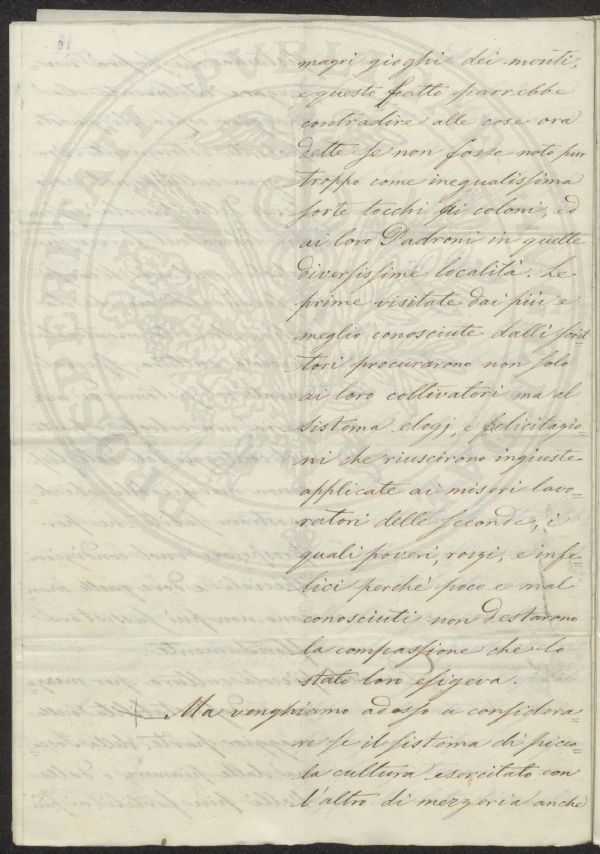 magri gioghi dei monti,
e questo fatto parrebbe
contradire alle cose ora
dette se non fosse noto pur
troppo come inegualissima
sorte tocchi ai coloni, ed
ai loro Padroni in quelle
diversissime località. Le
prime visitate dai più e
meglio conosciute dalli scrit
tori procurarono non solo
ai loro coltivatori ma al
sistema elogj, e felicitazio-
ni che riuscirono ingiuste
applicate ai miseri lavo-
ratori delle seconde, i
quali poveri, rozzi, e infe-
lici perché poco e mal
conosciuti non destarono
la compassione che lo
stato loro esigeva.
Ma venghiamo adesso a considera-
re se il sistema di picco-
la cultura esercitato con
l'altro di mezzeria anche
PROSPERITATI PUBLICAE